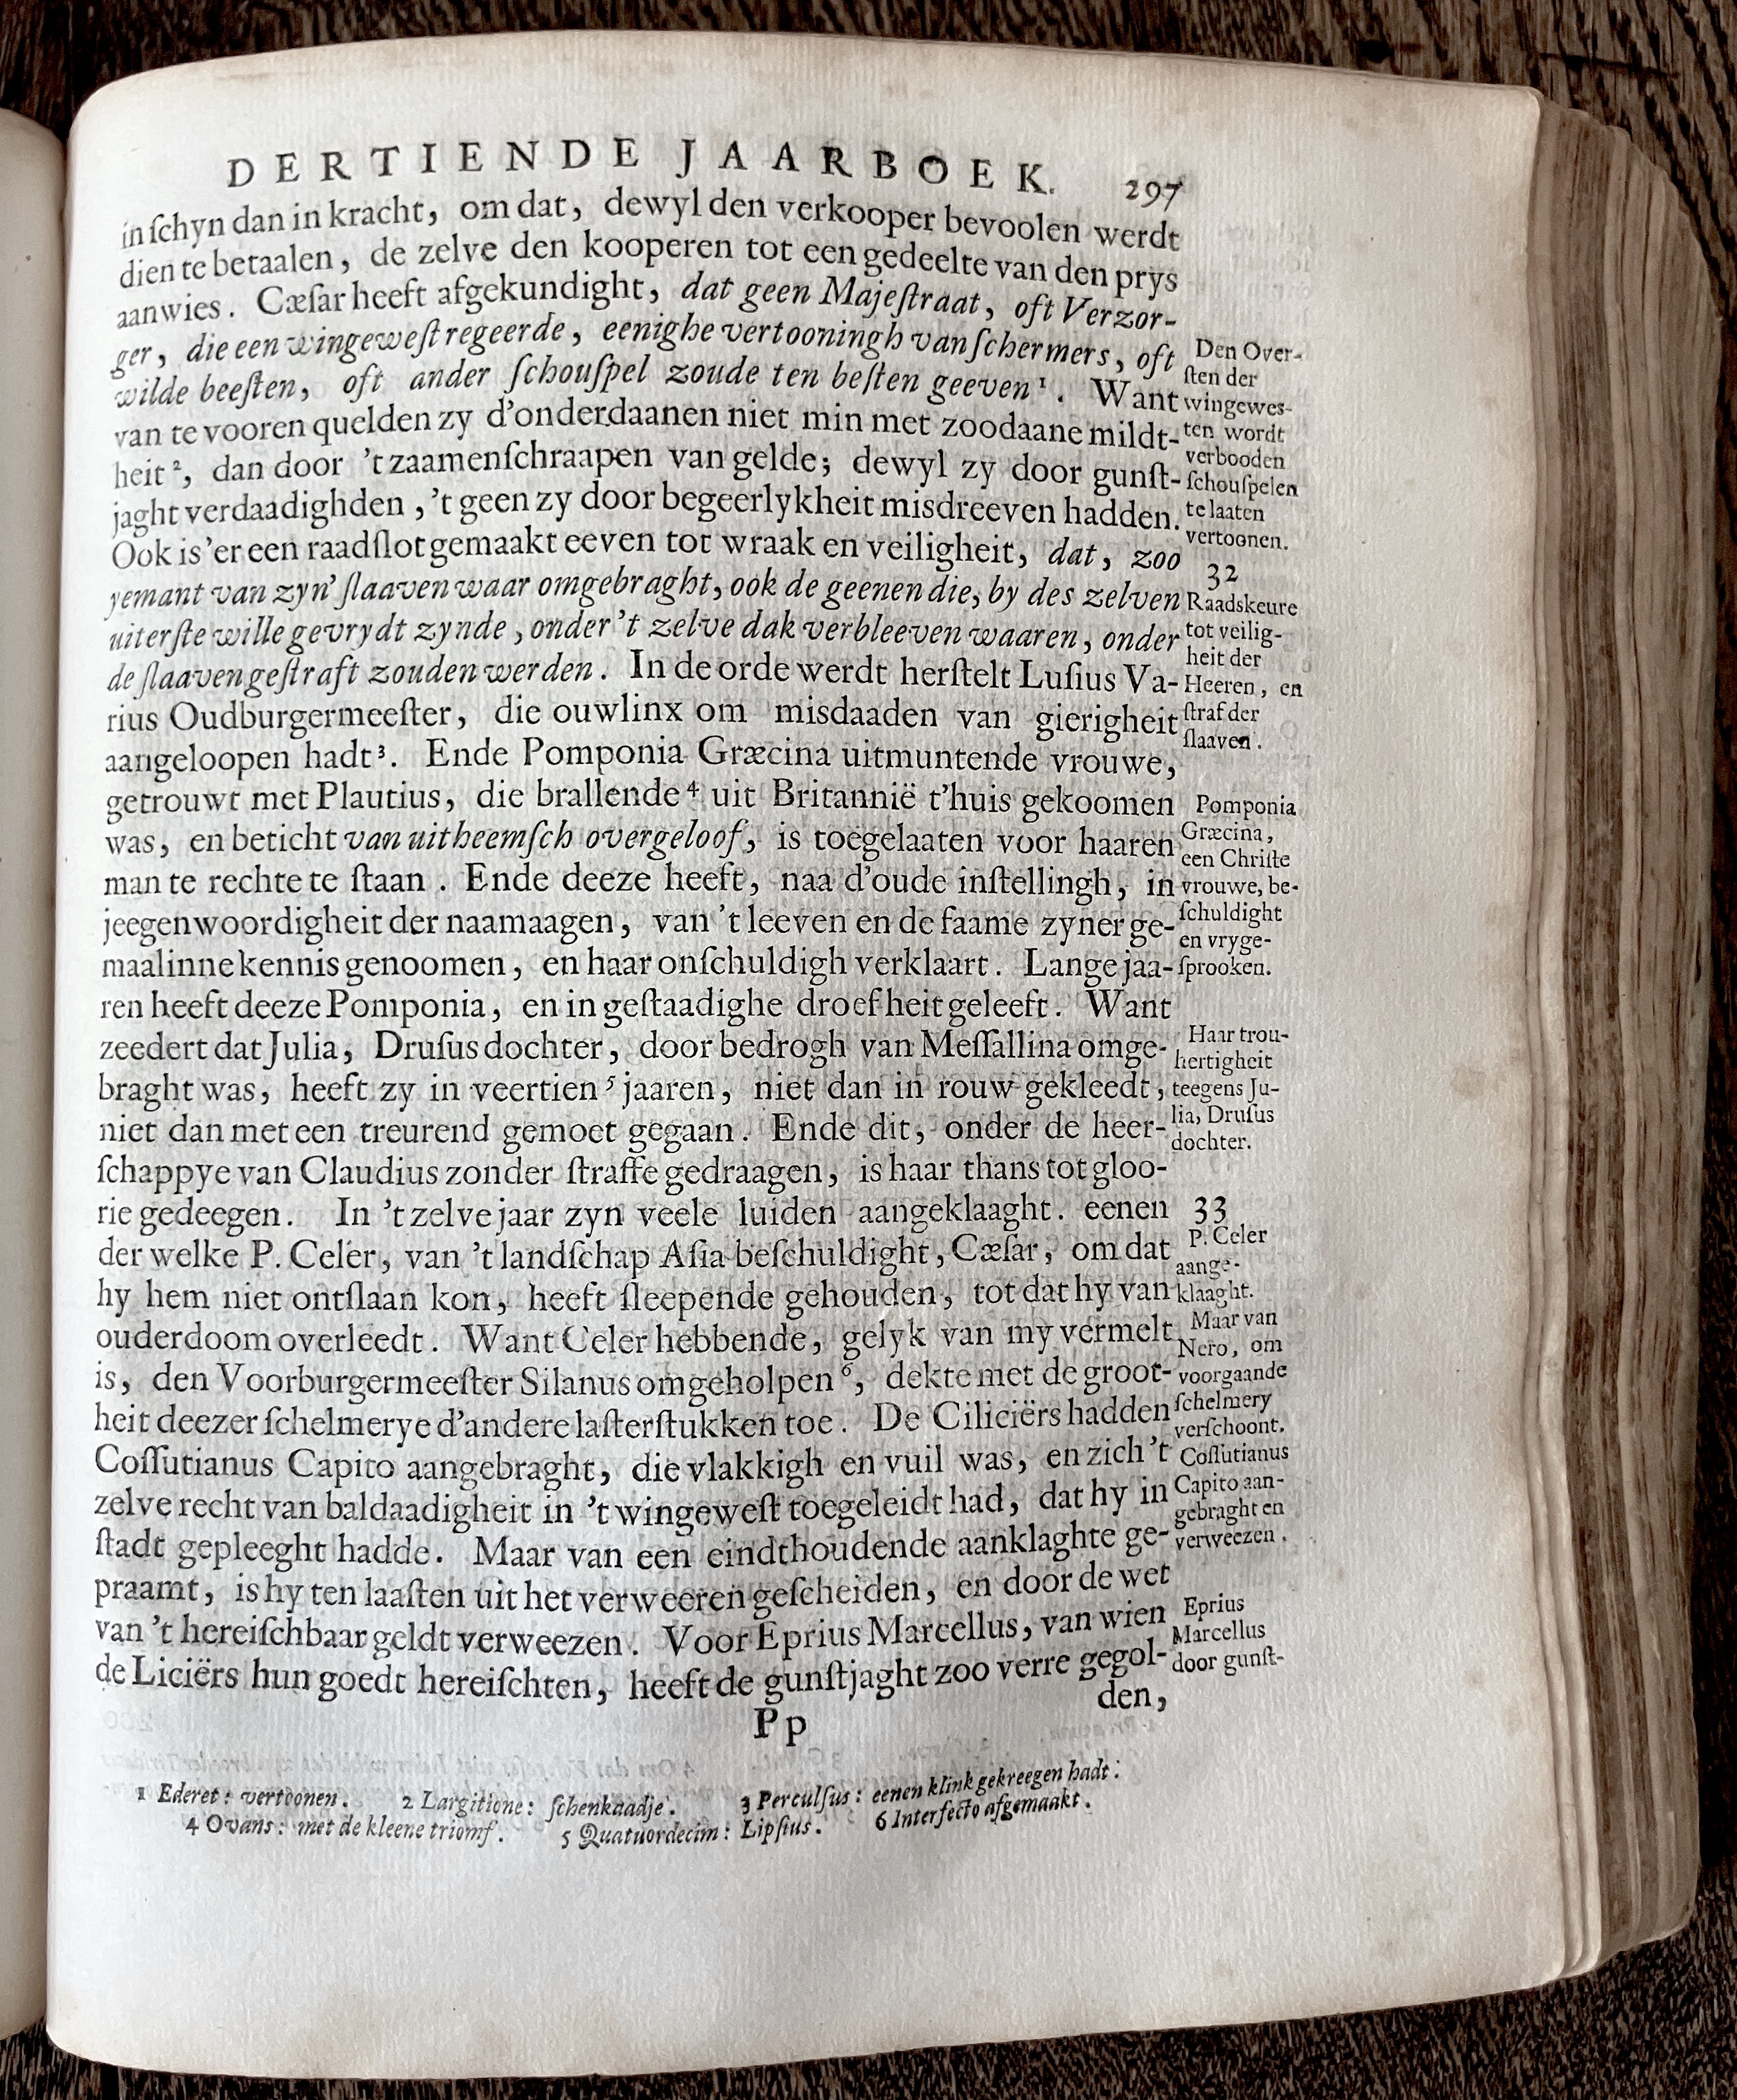 DERTIENDE JAARBOEK. 297
in ſchyn dan in kracht, om dat, dewyl den verkooper bevoolen werdt
dien te betaalen, de zelve den kooperen tot een gedeelte van den prys
aanwies. Cæſar heeft afgekundight, dat geen Majeſtraat, oft Verzor-
ger, die een wingeweſt regeerde, eenighe vertooningh van ſchermers, oft
wilde beeſten, oft ander ſchouſpel zoude ten beſten geeven¹. Want
van te vooren quelden zy d'onderdaanen niet min met zoodaane mildt-
heit², dan door 't zaamenſchraapen van gelde; dewyl zy door gunſt-
jaght verdaadighden, 't geen zy door begeerlykheit misdreeven hadden.
Ook is 'er een raadſlot gemaakt eeven tot wraak en veiligheit, dat, zoo
yemant van zyn' ſlaaven waar omgebraght, ook de geenen die, by des zelven
uiterſte wille gevrydt zynde, onder 't zelve dak verbleeven waaren, onder
de ſlaaven geſtraft zouden werden. In de orde werdt herſtelt Luſius Va-
rius Oudburgermeeſter, die ouwlinx om misdaaden van gierigheit
aangeloopen hadt³. Ende Pomponia Græcina uitmuntende vrouwe,
getrouwt met Plautius, die brallende⁴ uit Britannië t'huis gekoomen
was, en beticht van uitheemſch overgeloof, is toegelaaten voor haaren
man te rechte te ſtaan. Ende deeze heeft, naa d'oude inſtellingh, in
jeegenwoordigheit der naamaagen, van 't leeven en de faame zyner ge-
maalinne kennis genoomen, en haar onſchuldigh verklaart. Lange jaa-
ren heeft deeze Pomponia, en in geſtaadighe droefheit geleeft. Want
zeedert dat Julia, Druſus dochter, door bedrogh van Meſſallina omge-
braght was, heeft zy in veertien⁵ jaaren, niet dan in rouw gekleedt,
niet dan met een treurend gemoet gegaan. Ende dit, onder de heer-
ſchappye van Claudius zonder ſtraffe gedraagen, is haar thans tot gloo-
rie gedeegen. In 't zelve jaar zyn veele luiden aangeklaaght. eenen
der welke P. Celer, van 't landſchap Aſia beſchuldight, Cæſar, om dat
hy hem niet ontſlaan kon, heeft ſleepende gehouden, tot dat hy van
ouderdoom overleedt. Want Celer hebbende, gelyk van my vermelt
is, den Voorburgermeeſter Silanus omgeholpen⁶, dekte met de groot-
heit deezer ſchelmerye d'andere laſterſtukken toe. De Ciliciërs hadden
Coſſutianus Capito aangebraght, die vlakkigh en vuil was, en zich 't
zelve recht van baldaadigheit in 't wingeweſt toegeleidt had, dat hy in
ſtadt gepleeght hadde. Maar van een eindthoudende aanklaghte ge-
praamt, is hy ten laaſten uit het verweeren geſcheiden, en door de wet
van 't hereiſchbaar geldt verweezen. Voor Eprius Marcellus, van wien
de Liciërs hun goedt hereiſchten, heeft de gunſtjaght zoo verre gegol-
den,
Pp
Den Over-
ſten der
wingewes-
ten wordt
verbooden
ſchouſpelen
te laaten
vertoonen.
32
Raadskeure
tot veilig-
heit der
Heeren, en
ſtraf der
ſlaaven.
Pomponia
Græcina,
een Chriſte
vrouwe, be-
ſchuldight
en vryge-
ſprooken.
Haar trou-
hertigheit
teegens Ju-
lia, Druſus
dochter.
33
P. Celer
aange-
klaaght.
Maar van
Nero, om
voorgaande
ſchelmery
verſchoont.
Coſſutianus
Capito aan-
gebraght en
verweezen.
Eprius
Marcellus
door gunſt-
1 Ederet: vertoonen. 2 Largitione: ſchenkaadje. 3 Perculſus: eenen klink gekreegen hadt.
4 Ovans: met de kleene triomf. 5 Quatuordecim: Lipſius. 6 Interfecto afgemaakt.